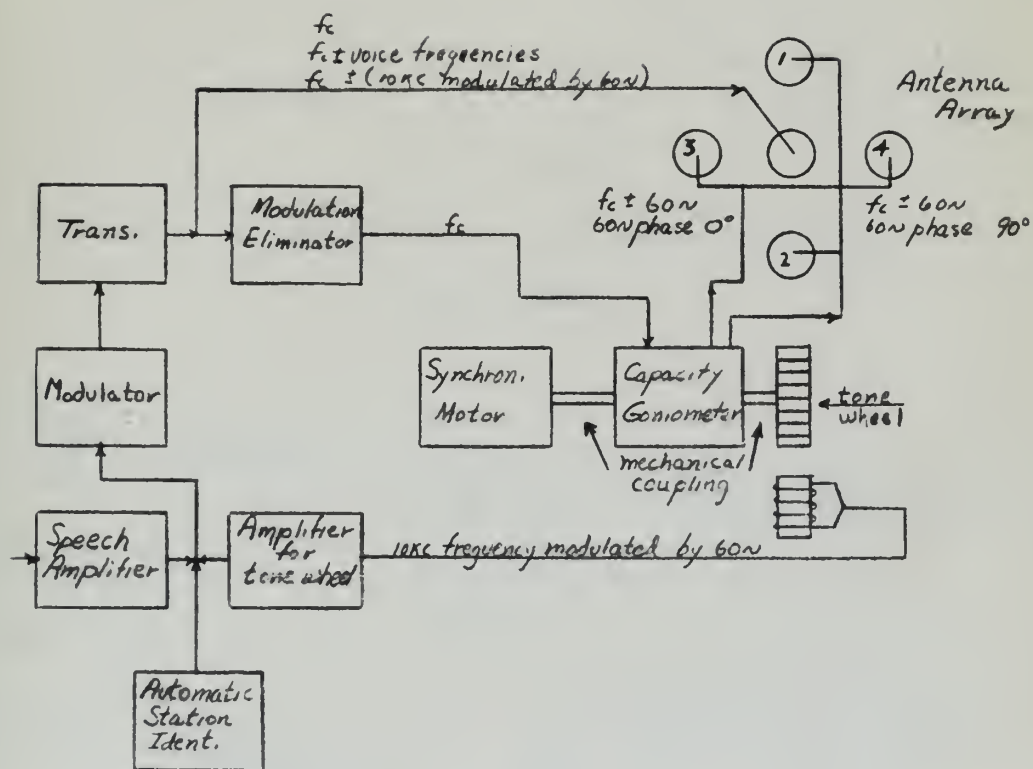 fc
fc ± voice frequencies
fc ± (10KC modulated by 60~)
Antenna
Array
1
3
4
2
fc ± 60~
60~ phase 0°
fc ± 60~
60~ phase 90°
Trans.
Modulation
Eliminator
fc
Modulator
Synchron.
Motor
Capacity
Goniometer
tone
wheel
mechanical
coupling
Speech
Amplifier
Amplifier
for
tone wheel
10KC frequency modulated by 60~
Automatic
Station
Ident.